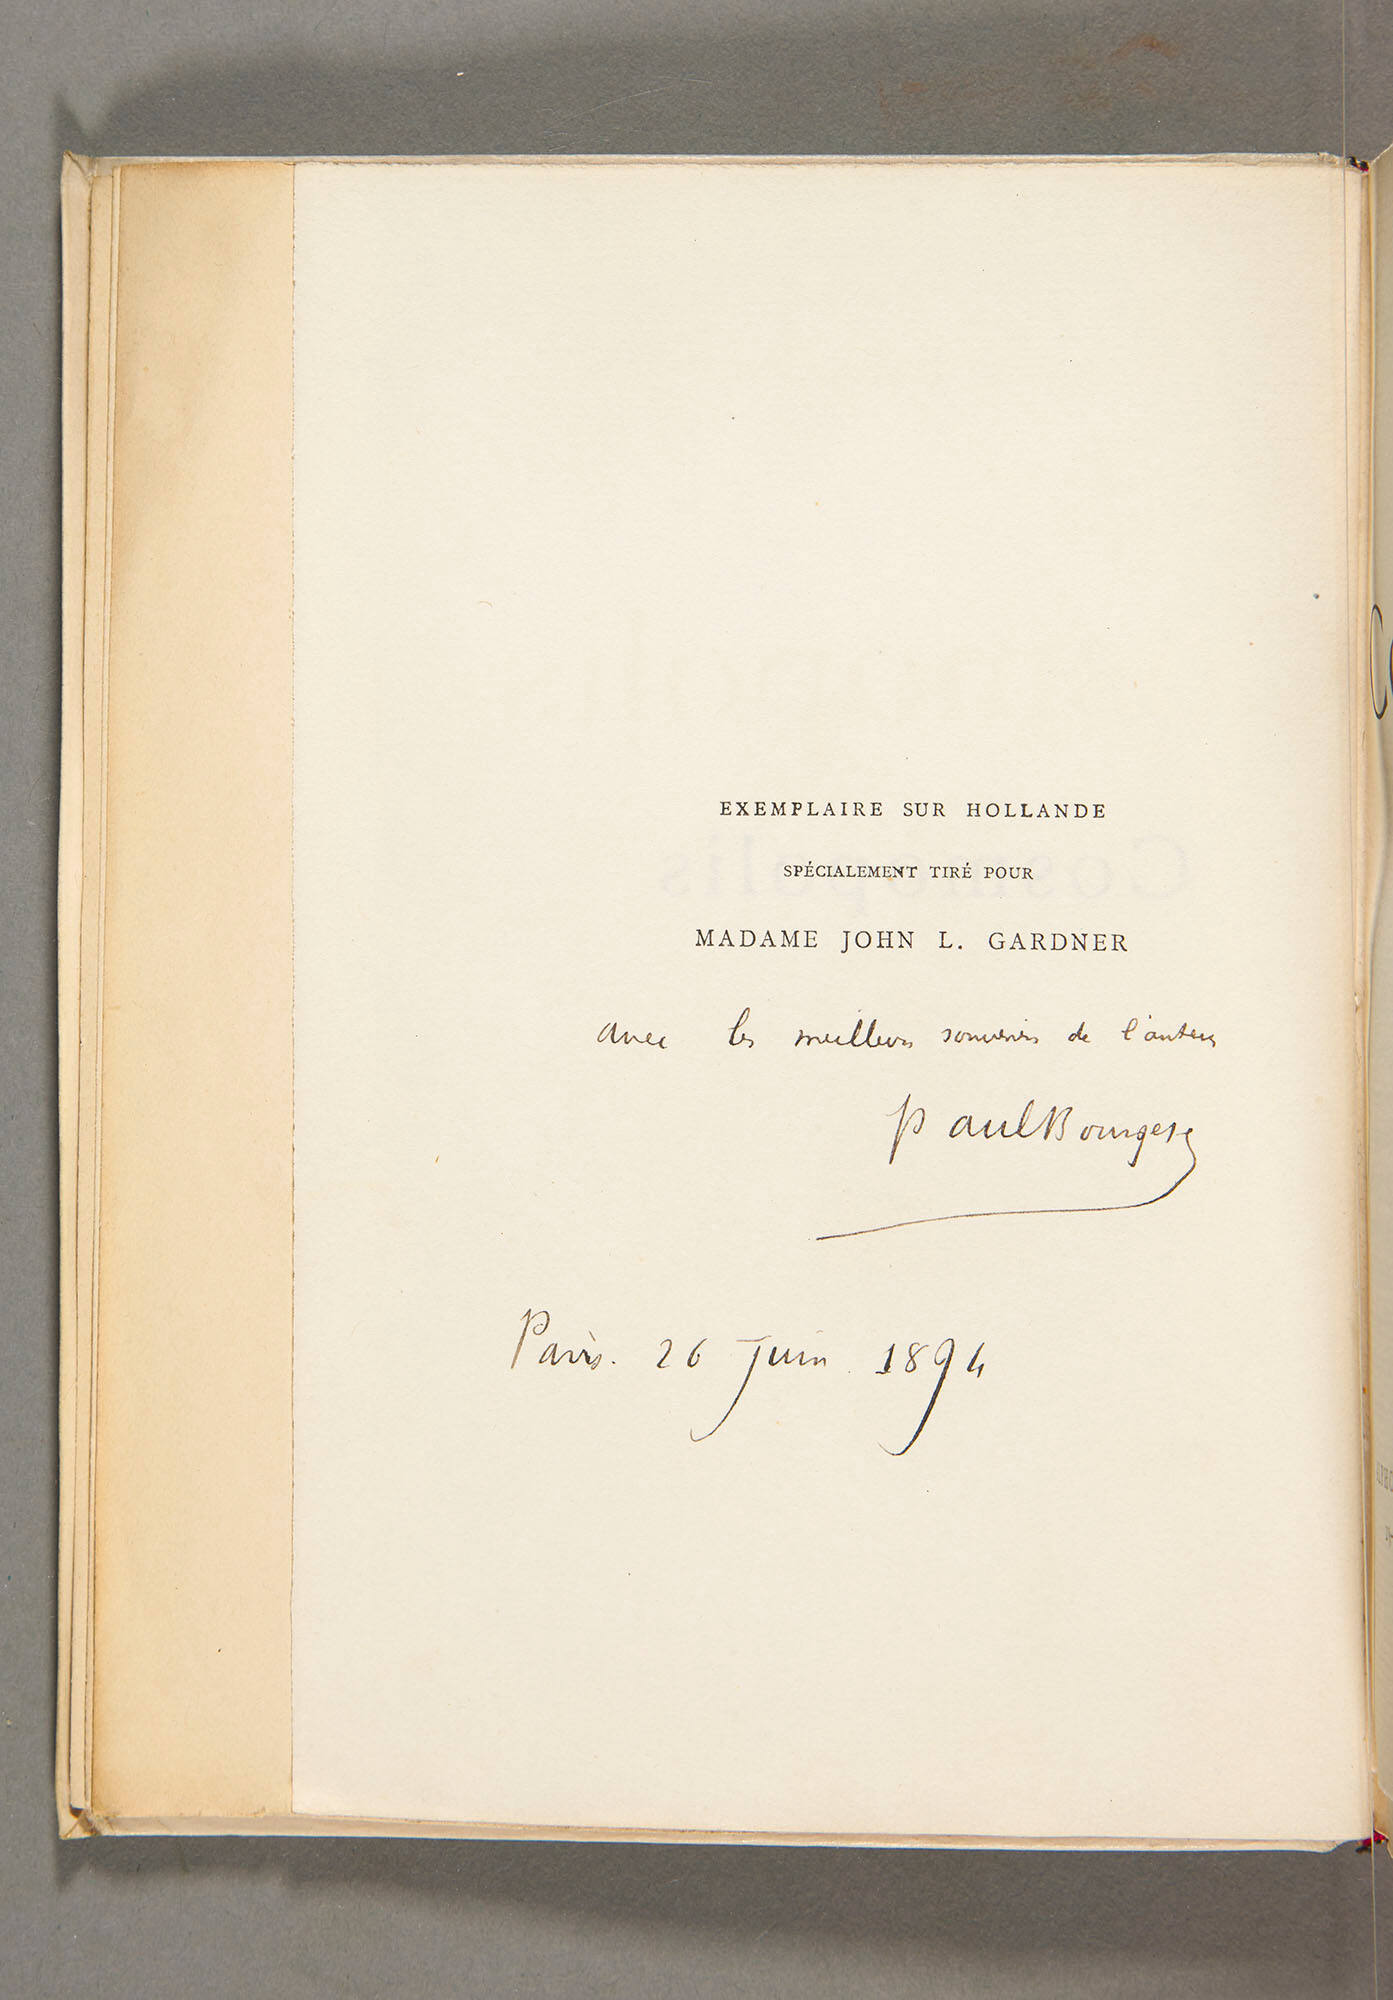 EXEMPLAIRE SUR HOLLANDE
SPÉCIALEMENT TIRÉ POUR
MADAME JOHN L. GARDNER
avec les meilleurs souvenirs de l'auteur
Paul Bourget
Paris. 26 Juin 1894